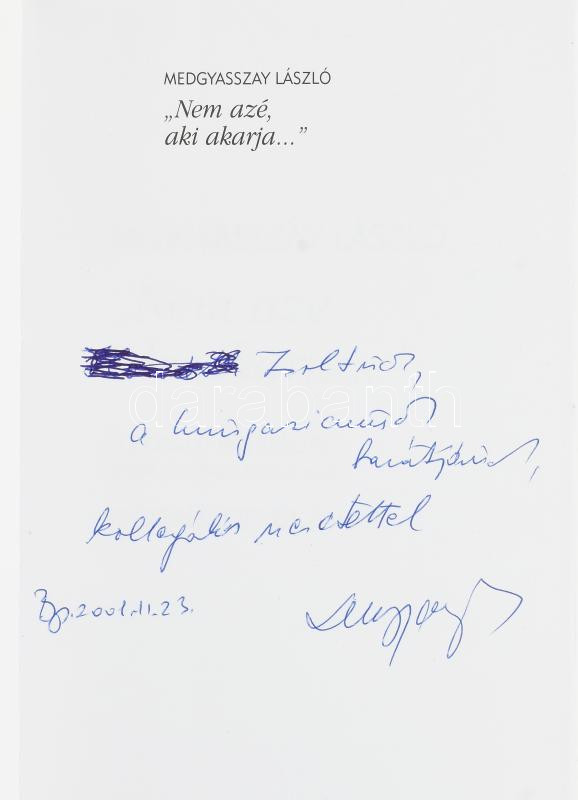 MEDGYASSZAY LÁSZLÓ
„Nem azé,
aki akarja...”
Zoltánnak,
a hungaricumok
barátjának,
kollegiális szeretettel
Bp. 2001.11.23.
darabanth